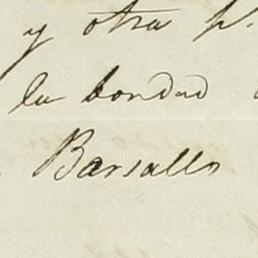 y otra p.
la bondad
Barsallo